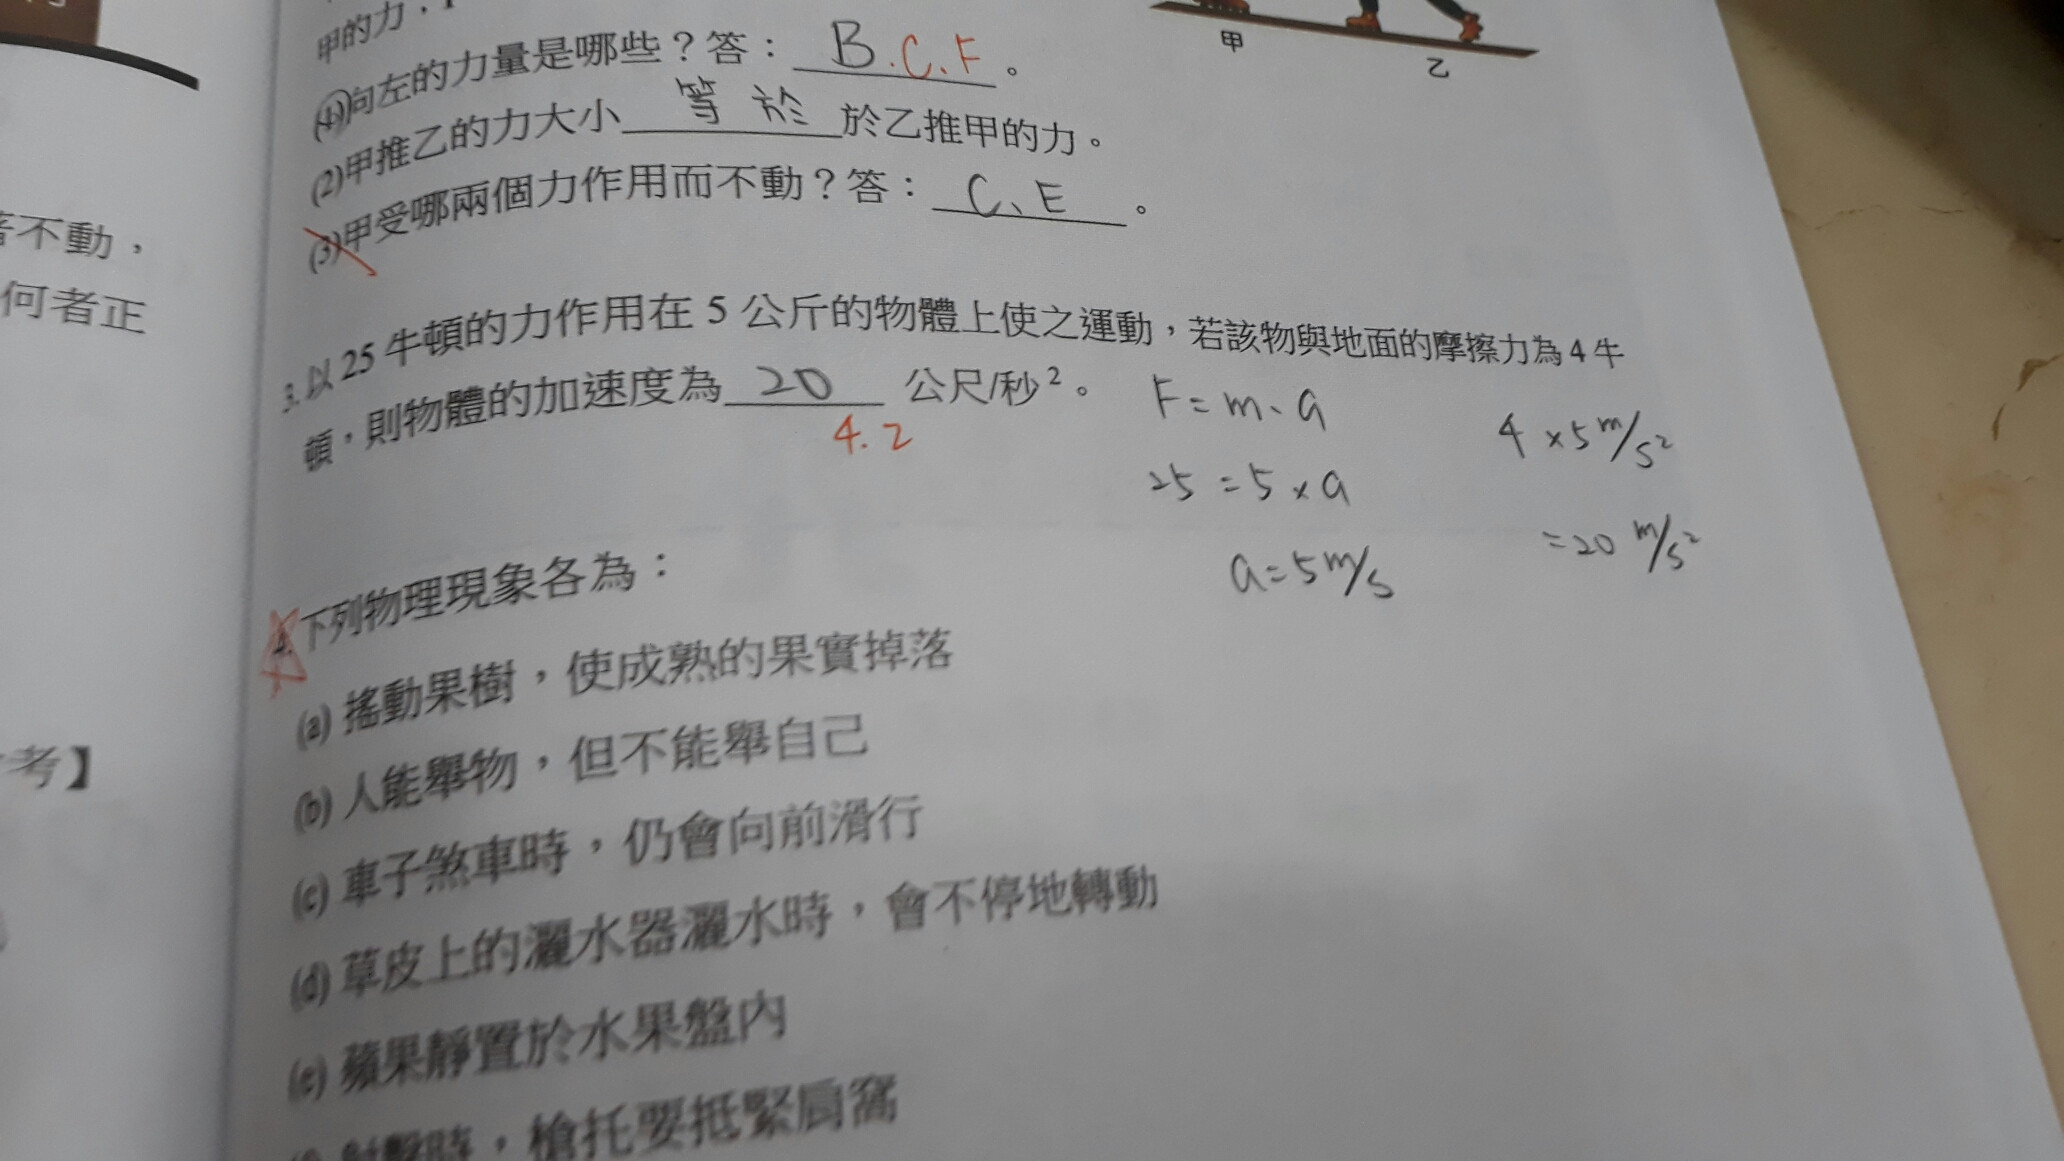 甲的力，
甲
乙
(1)向左的力量是哪些？答： B.C.F 。
(2)甲推乙的力大小 等於 於乙推甲的力。
(3)甲受哪兩個力作用而不動？答： C、E 。
著不動，
何者正
考】
3. 以 25 牛頓的力作用在 5 公斤的物體上使之運動，若該物與地面的摩擦力為 4 牛
頓，則物體的加速度為 20 公尺/秒²。
4.2
F=m、a
25=5×a
a=5m/s
4×5m/s²
=20 m/s²
4. 下列物理現象各為：
(a) 搖動果樹，使成熟的果實掉落
(b) 人能舉物，但不能舉自己
(c) 車子煞車時，仍會向前滑行
(d) 草皮上的灑水器灑水時，會不停地轉動
(e) 蘋果靜置於水果盤內
射擊時，槍托要抵緊肩窩